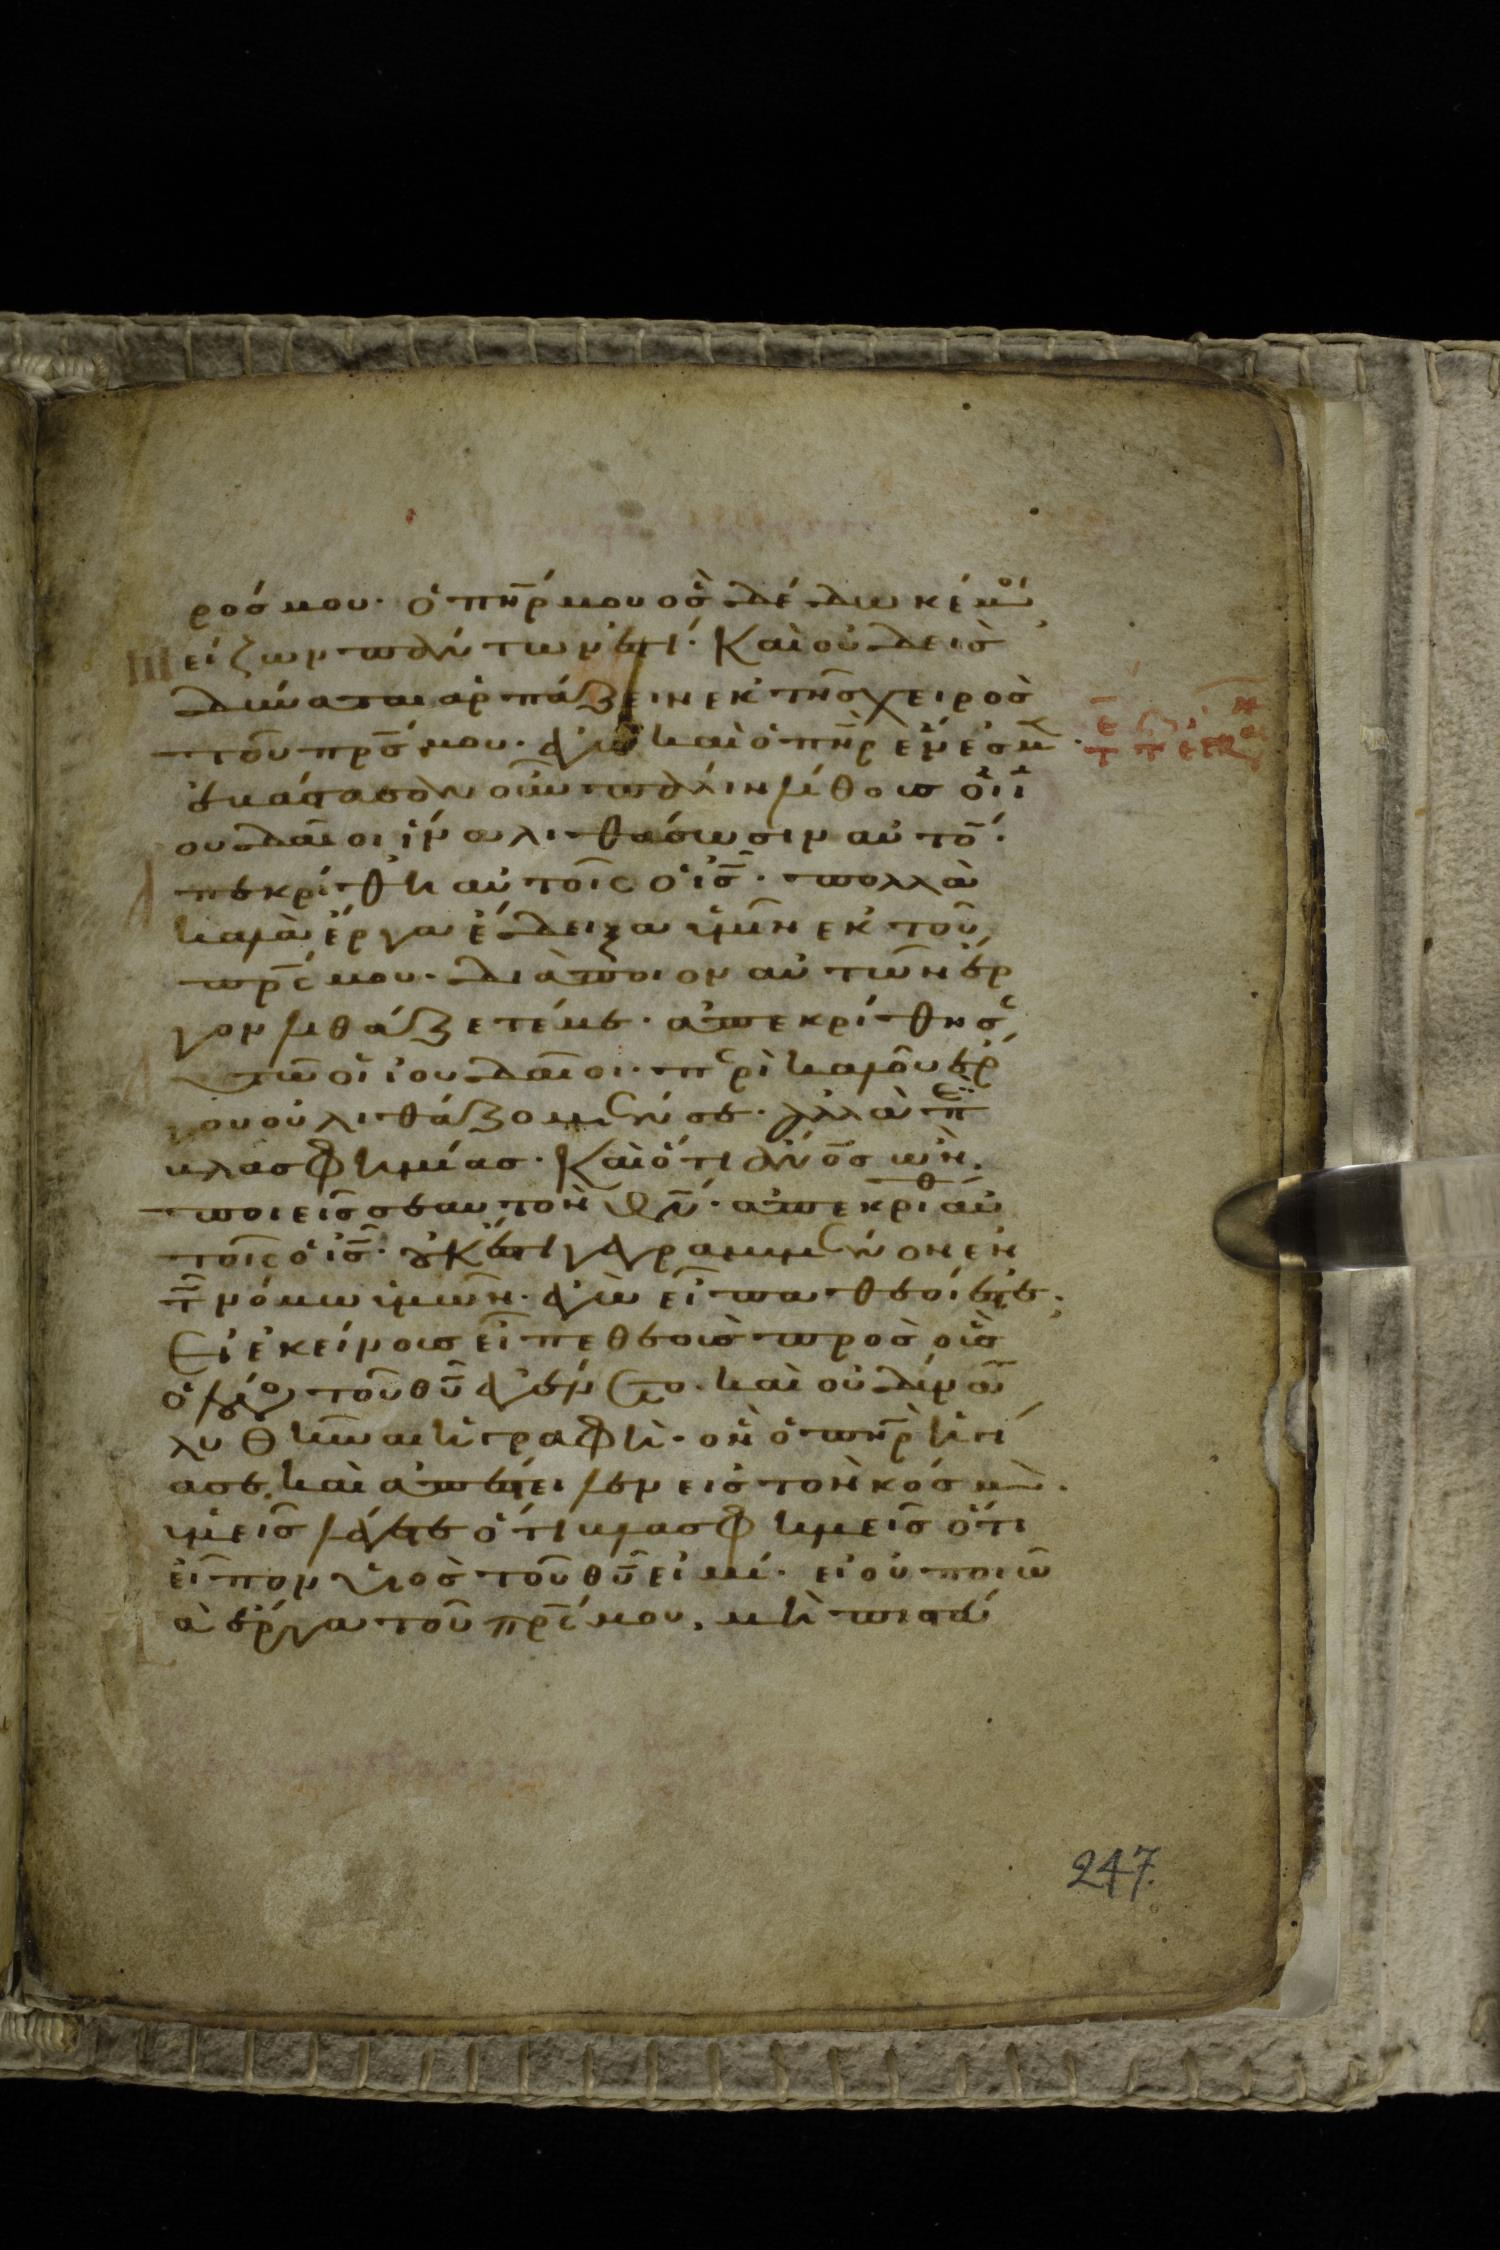 ρόσ μου· ὁ πη̅ρ μου ὃσ δέδωκέ μοι
Μείζων πάντων ἐστί· Καὶ οὐδεὶσ
δύναται ἁρπάζειν ἐκ τῆσ χειρὸσ
τοῦ πρ̅σ μου· ἐγὼ καὶ ὁ πη̅ρ ἕν ἐσμεν·
ἐβάστασαν οὖν πάλιν λίθουσ οἱ ἰ
ουδαῖοι ἵνα λιθάσωσιν αὐτόν·
Ἀπεκρίθη αὐτοῖσ ὁ ισ̅· πολλὰ
καλὰ ἔργα ἔδειξα ὑμῖν ἐκ τοῦ
πρ̅σ μου· διὰ ποῖον αὐτῶν ἔρ
γον λιθάζετέ με· ἀπεκρίθησαν
αὐτῷ οἱ ἰουδαῖοι· περὶ καλοῦ ἔρ
γου οὐ λιθάζομέν σε· ἀλλὰ περὶ
βλασφημίασ· Καὶ ὅτι ἀν̅οσ ὢν,
ποιεῖσ σεαυτὸν θν̅· ἀπεκρίθη αὐ
τοῖσ ὁ ισ̅· οὐκ ἔστι γεγραμμένον ἐν
τῷ νόμω ὑμῶν· ἐγὼ εἶπα θεοί ἐστε·
Εἰ ἐκείνουσ εἶπε θεοὺσ πρὸσ οὓσ
ὁ λόγοσ τοῦ θυ̅ ἐγένετο· καὶ οὐ δύναται
λυθῆναι ἡ γραφή· ὃν ὁ πη̅ρ ἡγί
ασε καὶ ἀπέστειλεν εἰσ τὸν κόσμον·
ὑμεῖσ λέγετε ὅτι βλασφημεῖσ ὅτι
εἶπον υἱὸσ τοῦ θυ̅ εἰμί· εἰ οὐ ποιῶ
τὰ ἔργα τοῦ πρ̅σ μου, μὴ πιστεύ
247.